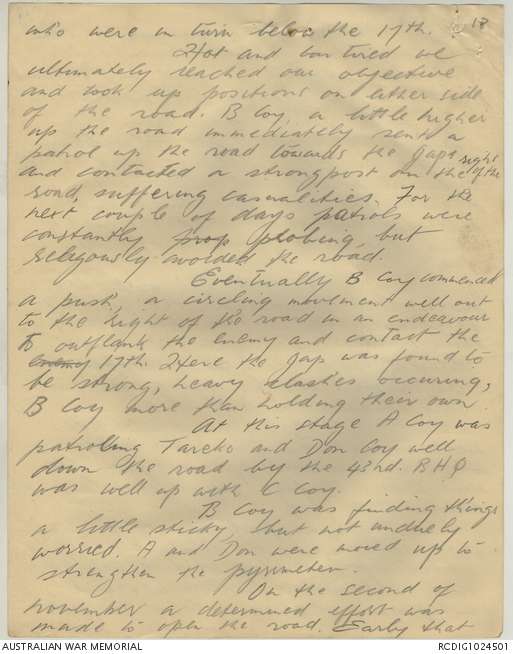 18
who were in turn below the 17th.
Hot and tired we
ultimately reached our objective
and took up positions on either side
of the road. B Coy, a little higher
up the road immediately sent a
patrol up the road towards the gap
and contacted a strongpost on the right of the
road, suffering casualities. For the
next couple of days patrols were
constantly prop probing, but
religously avoided the road.
Eventually B Coy commenced
a push, a circling movement well out
to the right of the road in an endeavour
to outflank the enemy and contact the
enemy 17th. Here the gap was found to
be strong, heavy clashes occuring,
B Coy more than holding their own.
At this stage A Coy was
patroling Tareko and Don Coy well
down the road by the 43rd. BHQ
was well up with C Coy.
B Coy was finding things
a little sticky, but not unduely
worried. A and Don were moved up to
strengthen the pyrimeter.
On the second of
november a determined effort was
made to open the road. Early that
AUSTRALIAN WAR MEMORIAL
RCDIG1024501